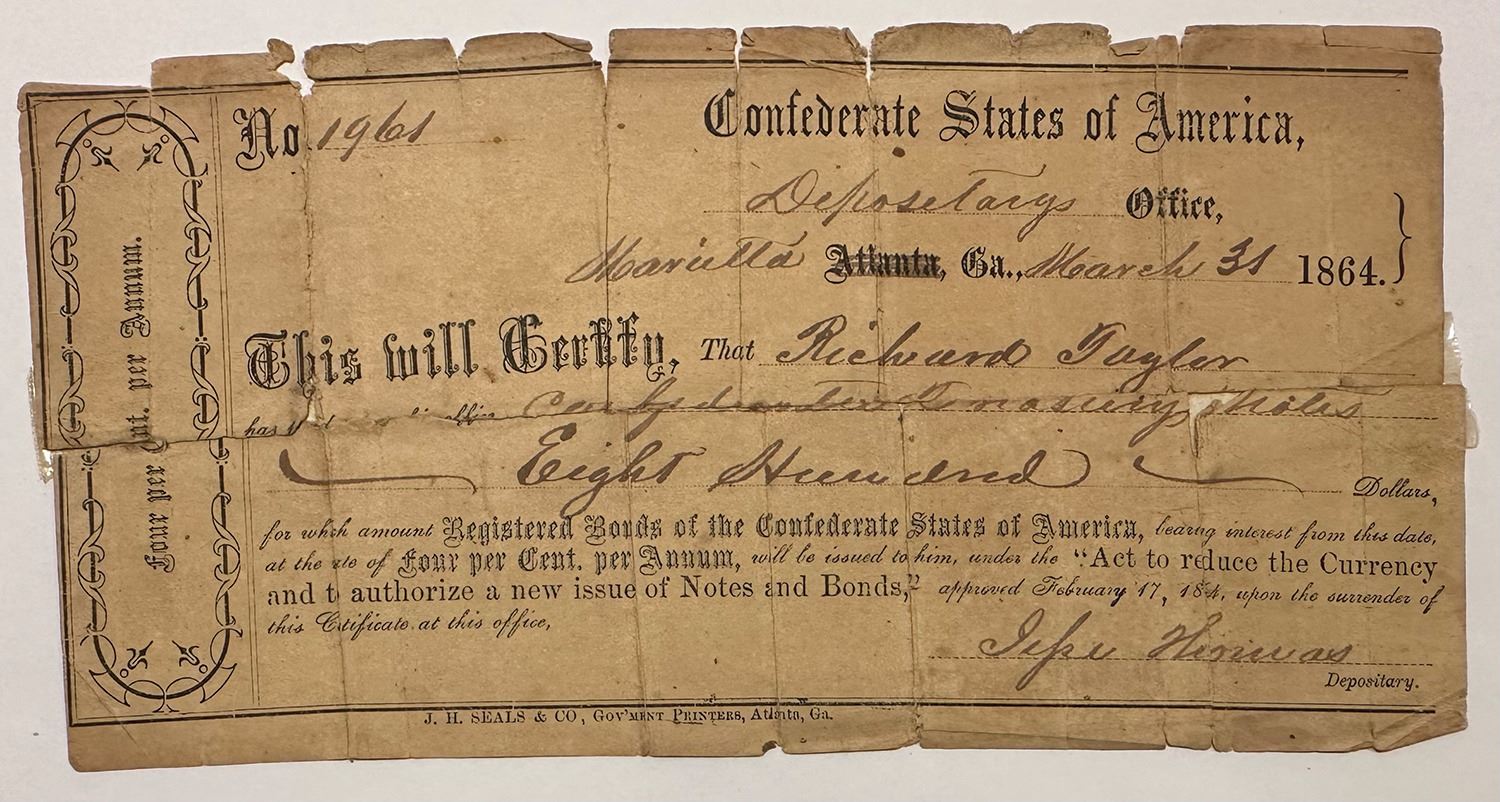 No. 1961
Confederate States of America,
Depositarys Office,
Marietta Atlanta, Ga., March 31 1864.
This will Certify, That Richard Taylor
has Treasury Notes
Eight Hundred Dollars,
for which amount Registered Bonds of the Confederate States of America, bearing interest from this date,
at the ate of Four per Cent. per Annum, will be issued to him, under the "Act to reduce the Currency
and t authorize a new issue of Notes and Bonds," approved February 17, 184, upon the surrender of
this Ctificate at this office,
Depositary.
J. H. SEALS & CO, GOV'MENT PRINTERS, Atlanta, Ga.
Four per nt. per Annum.